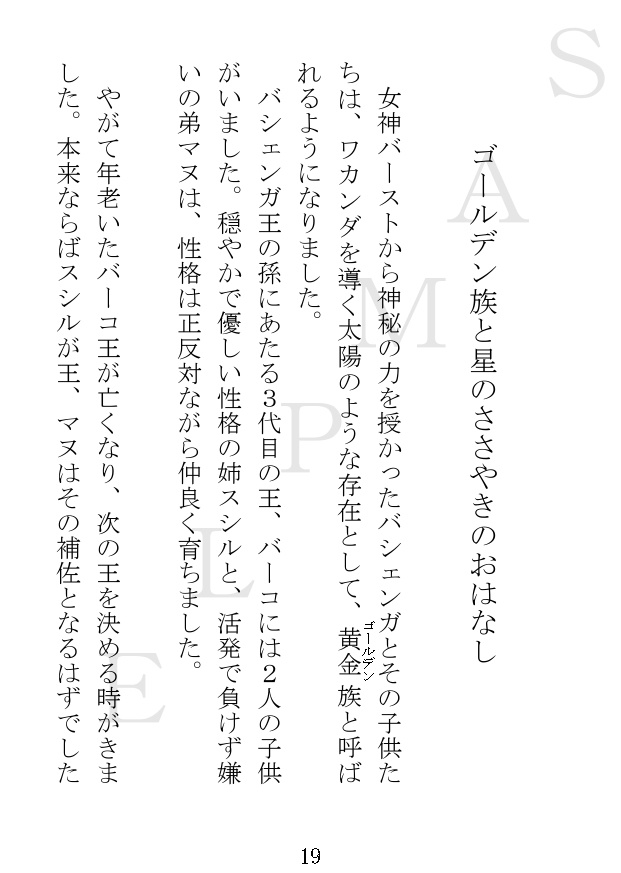 ゴールデン族と星のささやきのおはなし
女神バーストから神秘の力を授かったバシェンガとその子供た
ちは、ワカンダを導く太陽のような存在として、黄金族と呼ば
ゴールデン
れるようになりました。
バシェンガ王の孫にあたる3代目の王、バーコには2人の子供
がいました。穏やかで優しい性格の姉スシルと、活発で負けず嫌
いの弟マヌは、性格は正反対ながら仲良く育ちました。
やがて年老いたバーコ王が亡くなり、次の王を決める時がきま
した。本来ならばスシルが王、マヌはその補佐となるはずでした
19
SAMPLE